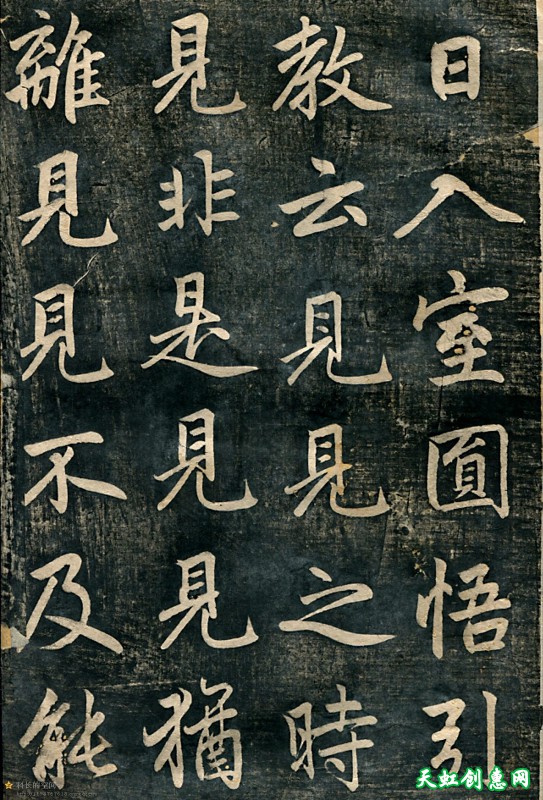 日入室圓悟引
教云見見之時
見非是見見猶
離見見不及能
天虹创惠网